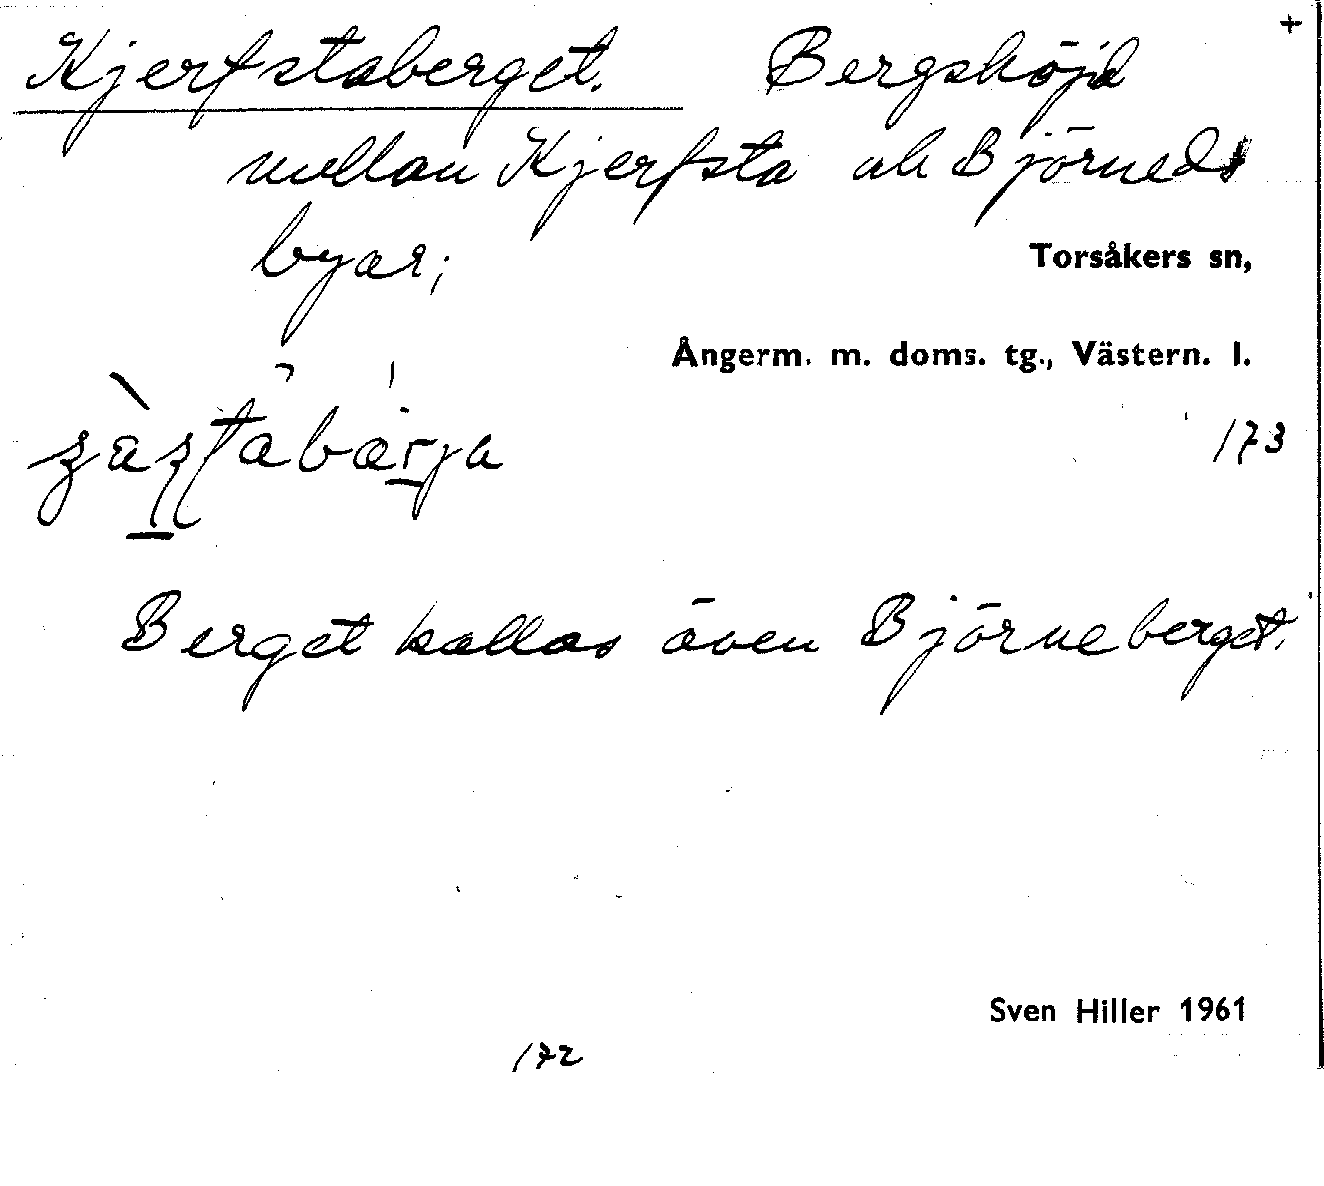 +
Kjerfstaberget. Bergshöjd
mellan Kjerfsta och Björneds
byar;
Torsåkers sn,
Ångerm. m. doms. tg., Västern. l.
173
Berget kallas även Björneberget.
Sven Hiller 1961
172